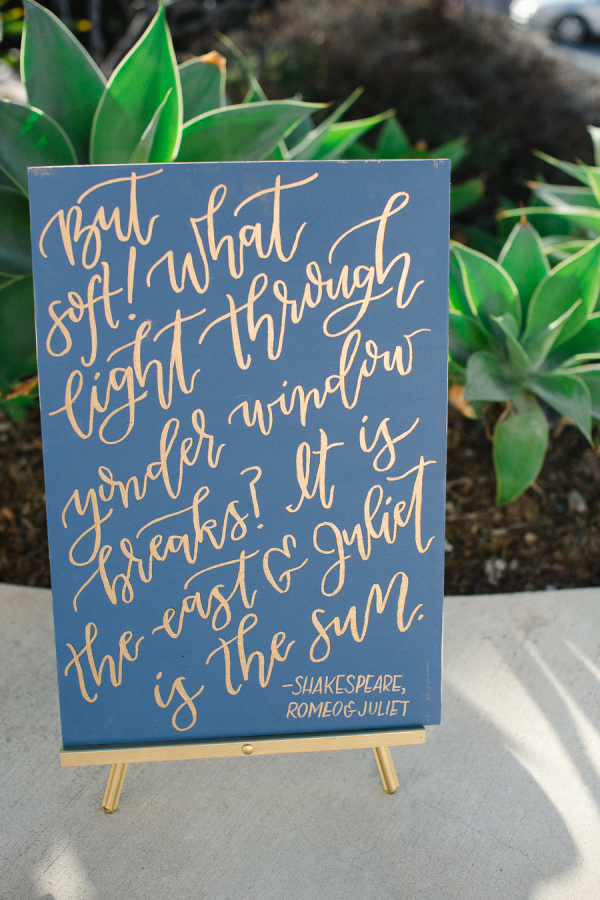 But
soft! What
light through
yonder window
breaks? It is
the east & Juliet
is the sun.
-SHAKESPEARE,
ROMEO & JULIET